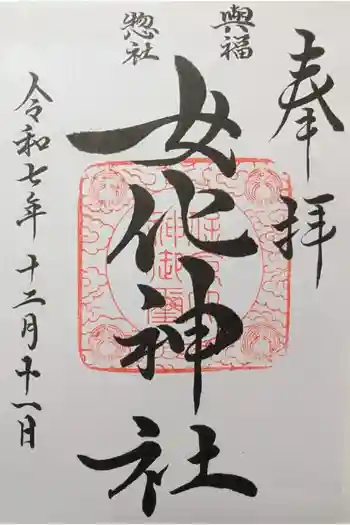 奉拝
輿福
惣社
女化神社
令和七年十二月十一日